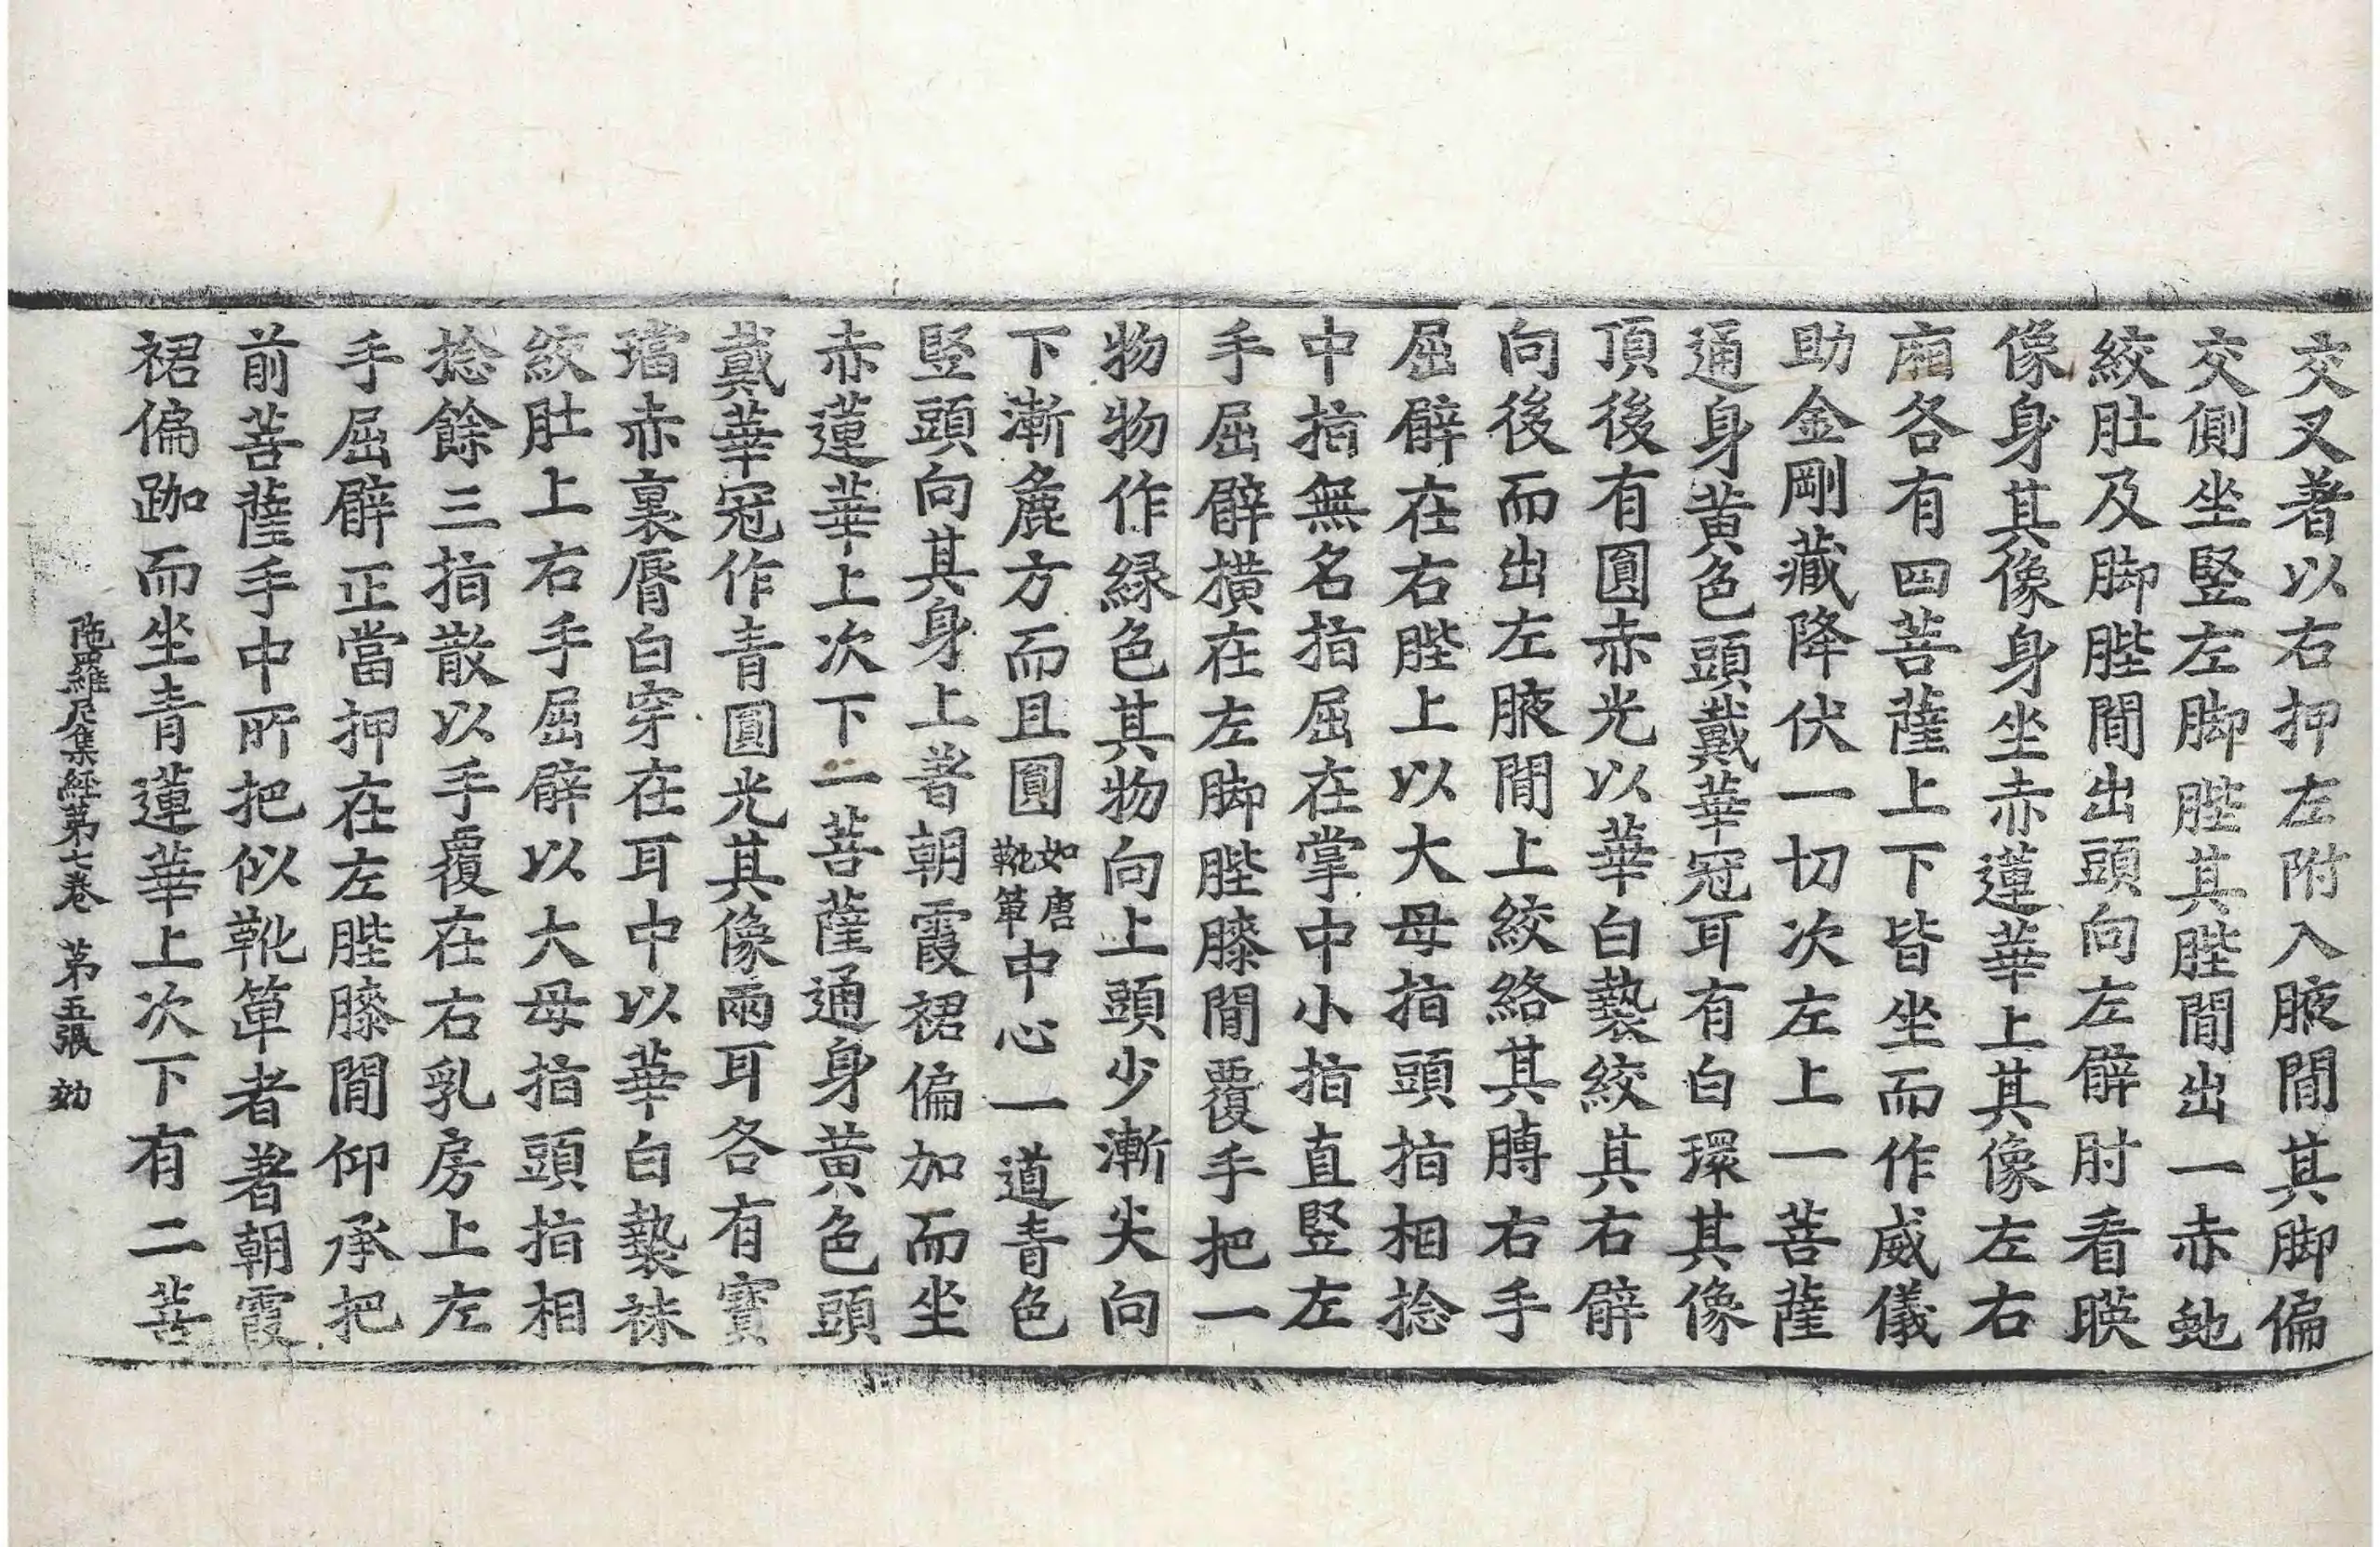 交叉著以右押左附入腋間其脚偏
交側坐竪左脚䏶其䏶間出一赤虵
絞肚及脚䏶間出頭向左臂肘看瞋
像身其像身坐赤蓮華上其像左右
廂各有四菩薩上下皆坐而作威儀
助金剛藏降伏一切次左上一菩薩
通身黃色頭戴華冠耳有白環其像
頂後有圓赤光以華白㲲絞其右臂
向後而出左腋間上絞絡其膊右手
屈臂在右䏶上以大母指頭指相捻
中指無名指屈在掌中小指直竪左
手屈臂橫在左脚䏶膝間覆手把一
物物作緑色其物向上頭少漸尖向
下漸麁方而且圓如唐靴䩭中心一道青色
竪頭向其身上著朝霞裙偏加而坐
赤蓮華上次下一菩薩通身黃色頭
戴華冠作青圓光其像兩耳各有寶
璫赤裏脣白穿在耳中以華白㲲袜
絞肚上右手屈臂以大母指頭指相
捻餘三指散以手覆在右乳房上左
手屈臂正當押在左䏶膝間仰承把
前菩薩手中所把似靴䩭者著朝霞
裙偏跏而坐青蓮華上次下有二菩
陁羅尼集經第七卷 第五張 劲